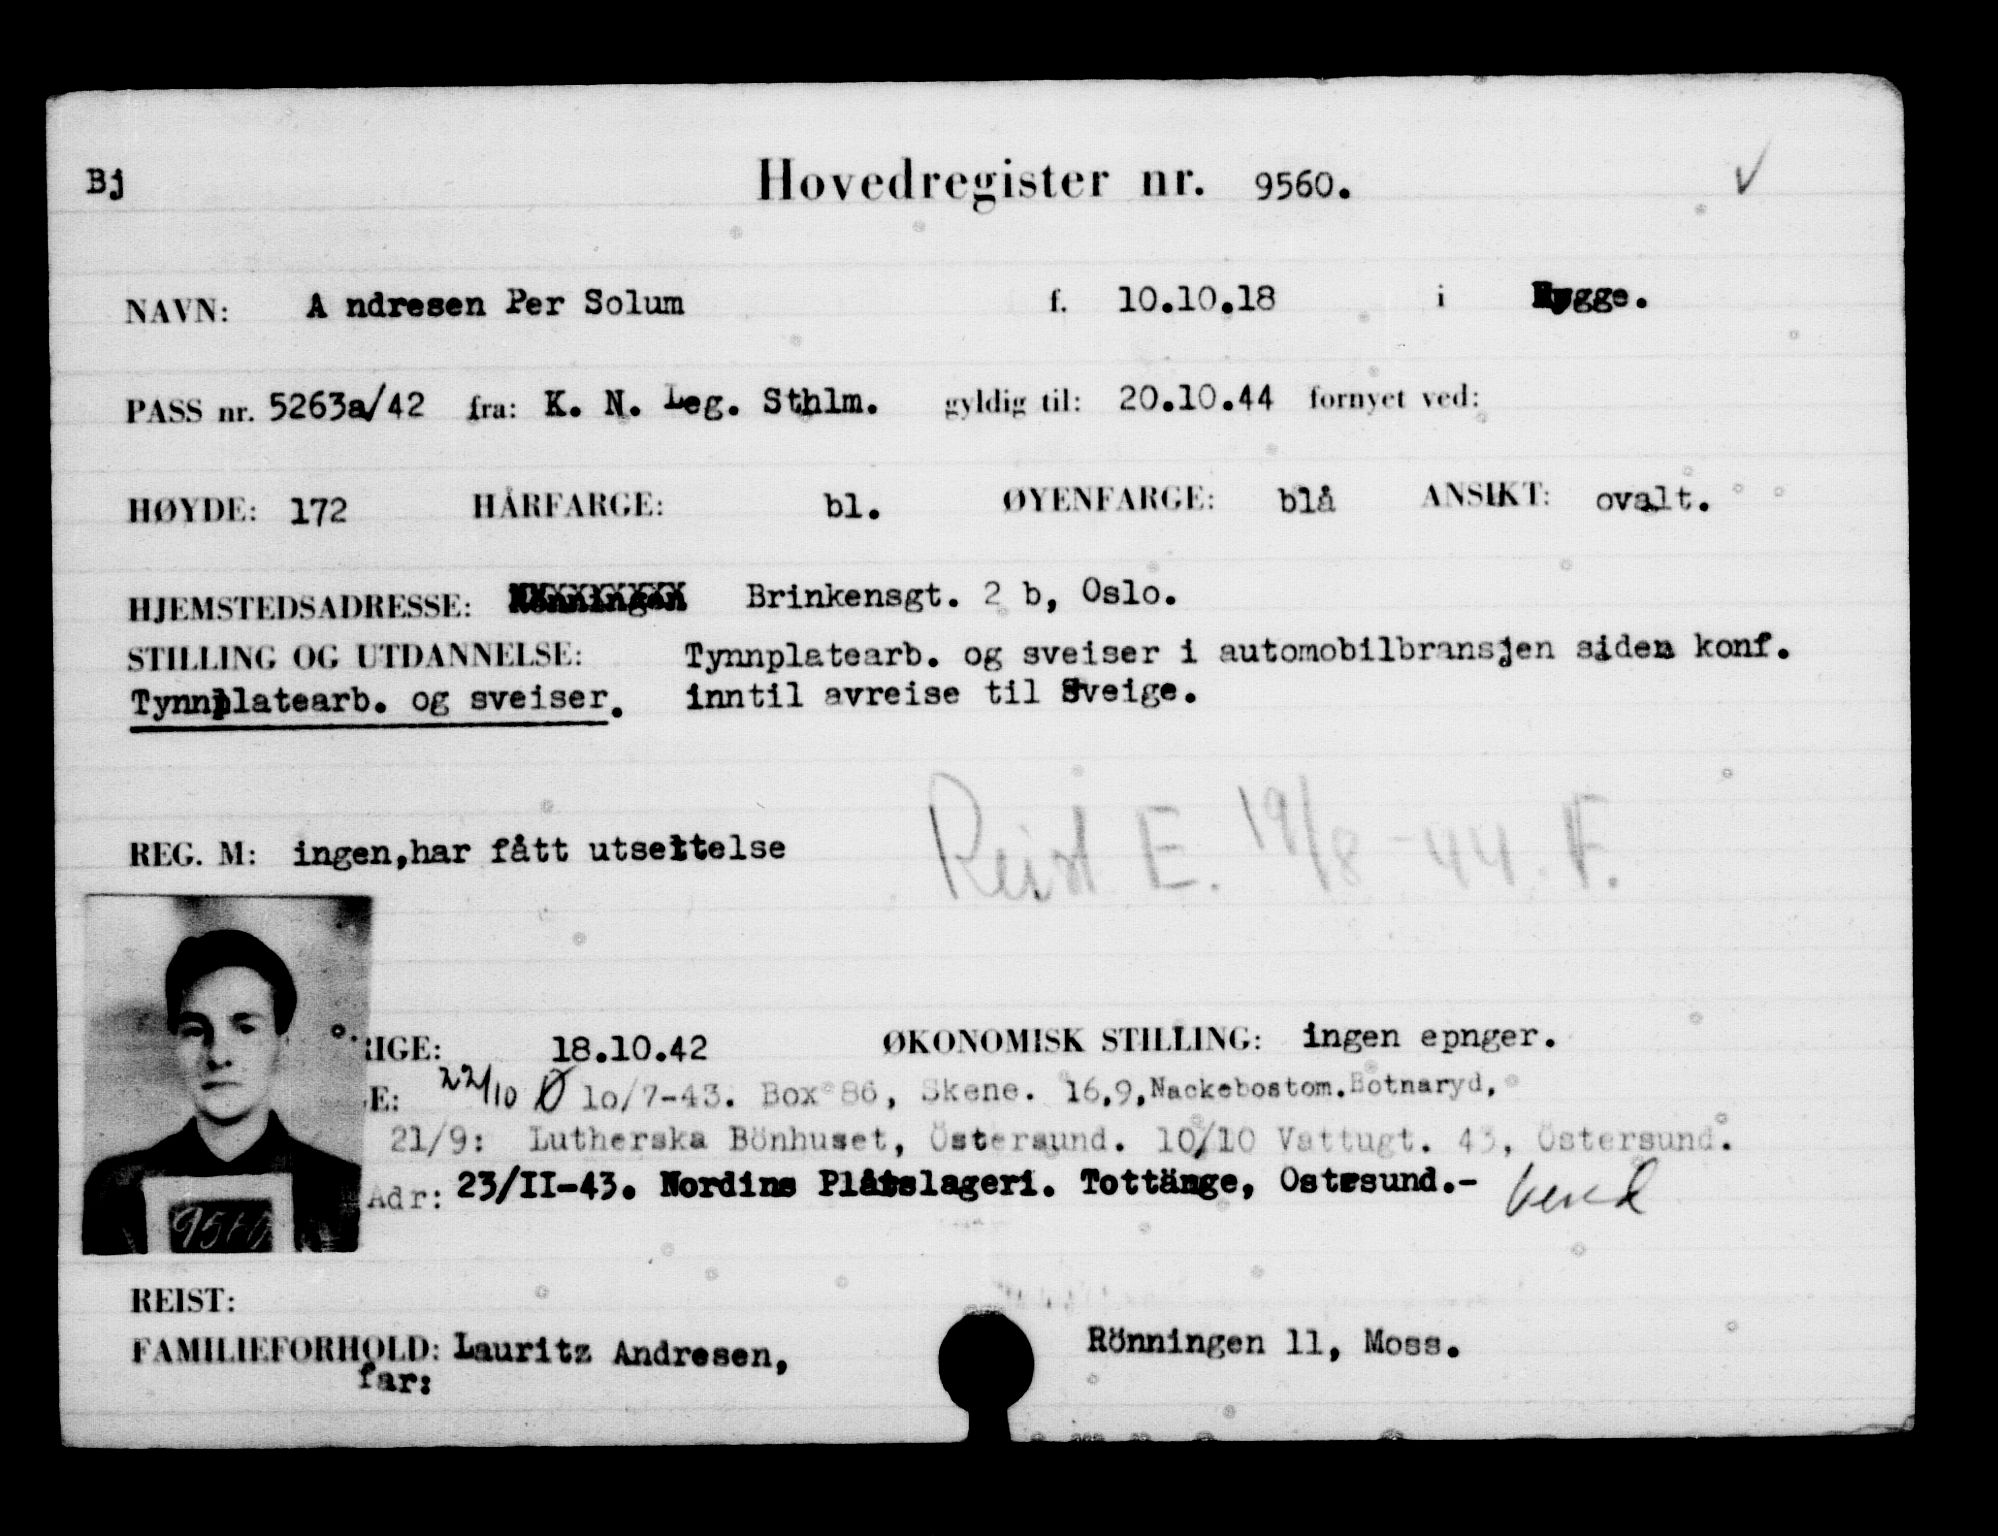 Bj Hovedregister nr. 9560. ✓
NAVN: A ndresen Per Solum f. 10.10.18 i Rygge.
PASS nr. 5263a/42 fra: K. N. Leg. Sthlm. gyldig til: 20.10.44 fornyet ved:
HØYDE: 172 HÅRFARGE: bl. ØYENFARGE: blå ANSIKT: ovalt.
HJEMSTEDSADRESSE: Brinkensgt. 2 b, Oslo.
STILLING OG UTDANNELSE: Tynnplatearb. og sveiser i automobilbransjen siden konf.
Tynnplatearb. og sveiser. inntil avreise til Sveige.
REG. M: ingen,har fått utsettelse
Reist E. 19/8-44. F.
RIGE: 18.10.42 ØKONOMISK STILLING: ingen epnger.
E: 22/10 Ø 10/7-43. Box 86, Skene. 16,9,Nackebostom.Botnaryd,
21/9: Lutherska Bönhuset, Östersund. 10/10 Vattugt. 43, Östersund.
Adr: 23/II-43. Nordins Plåtslageri. Tottänge, Ostrsund.- Vend
9560
REIST:
FAMILIEFORHOLD: Lauritz Andresen, Rönningen 11, Moss.
far: